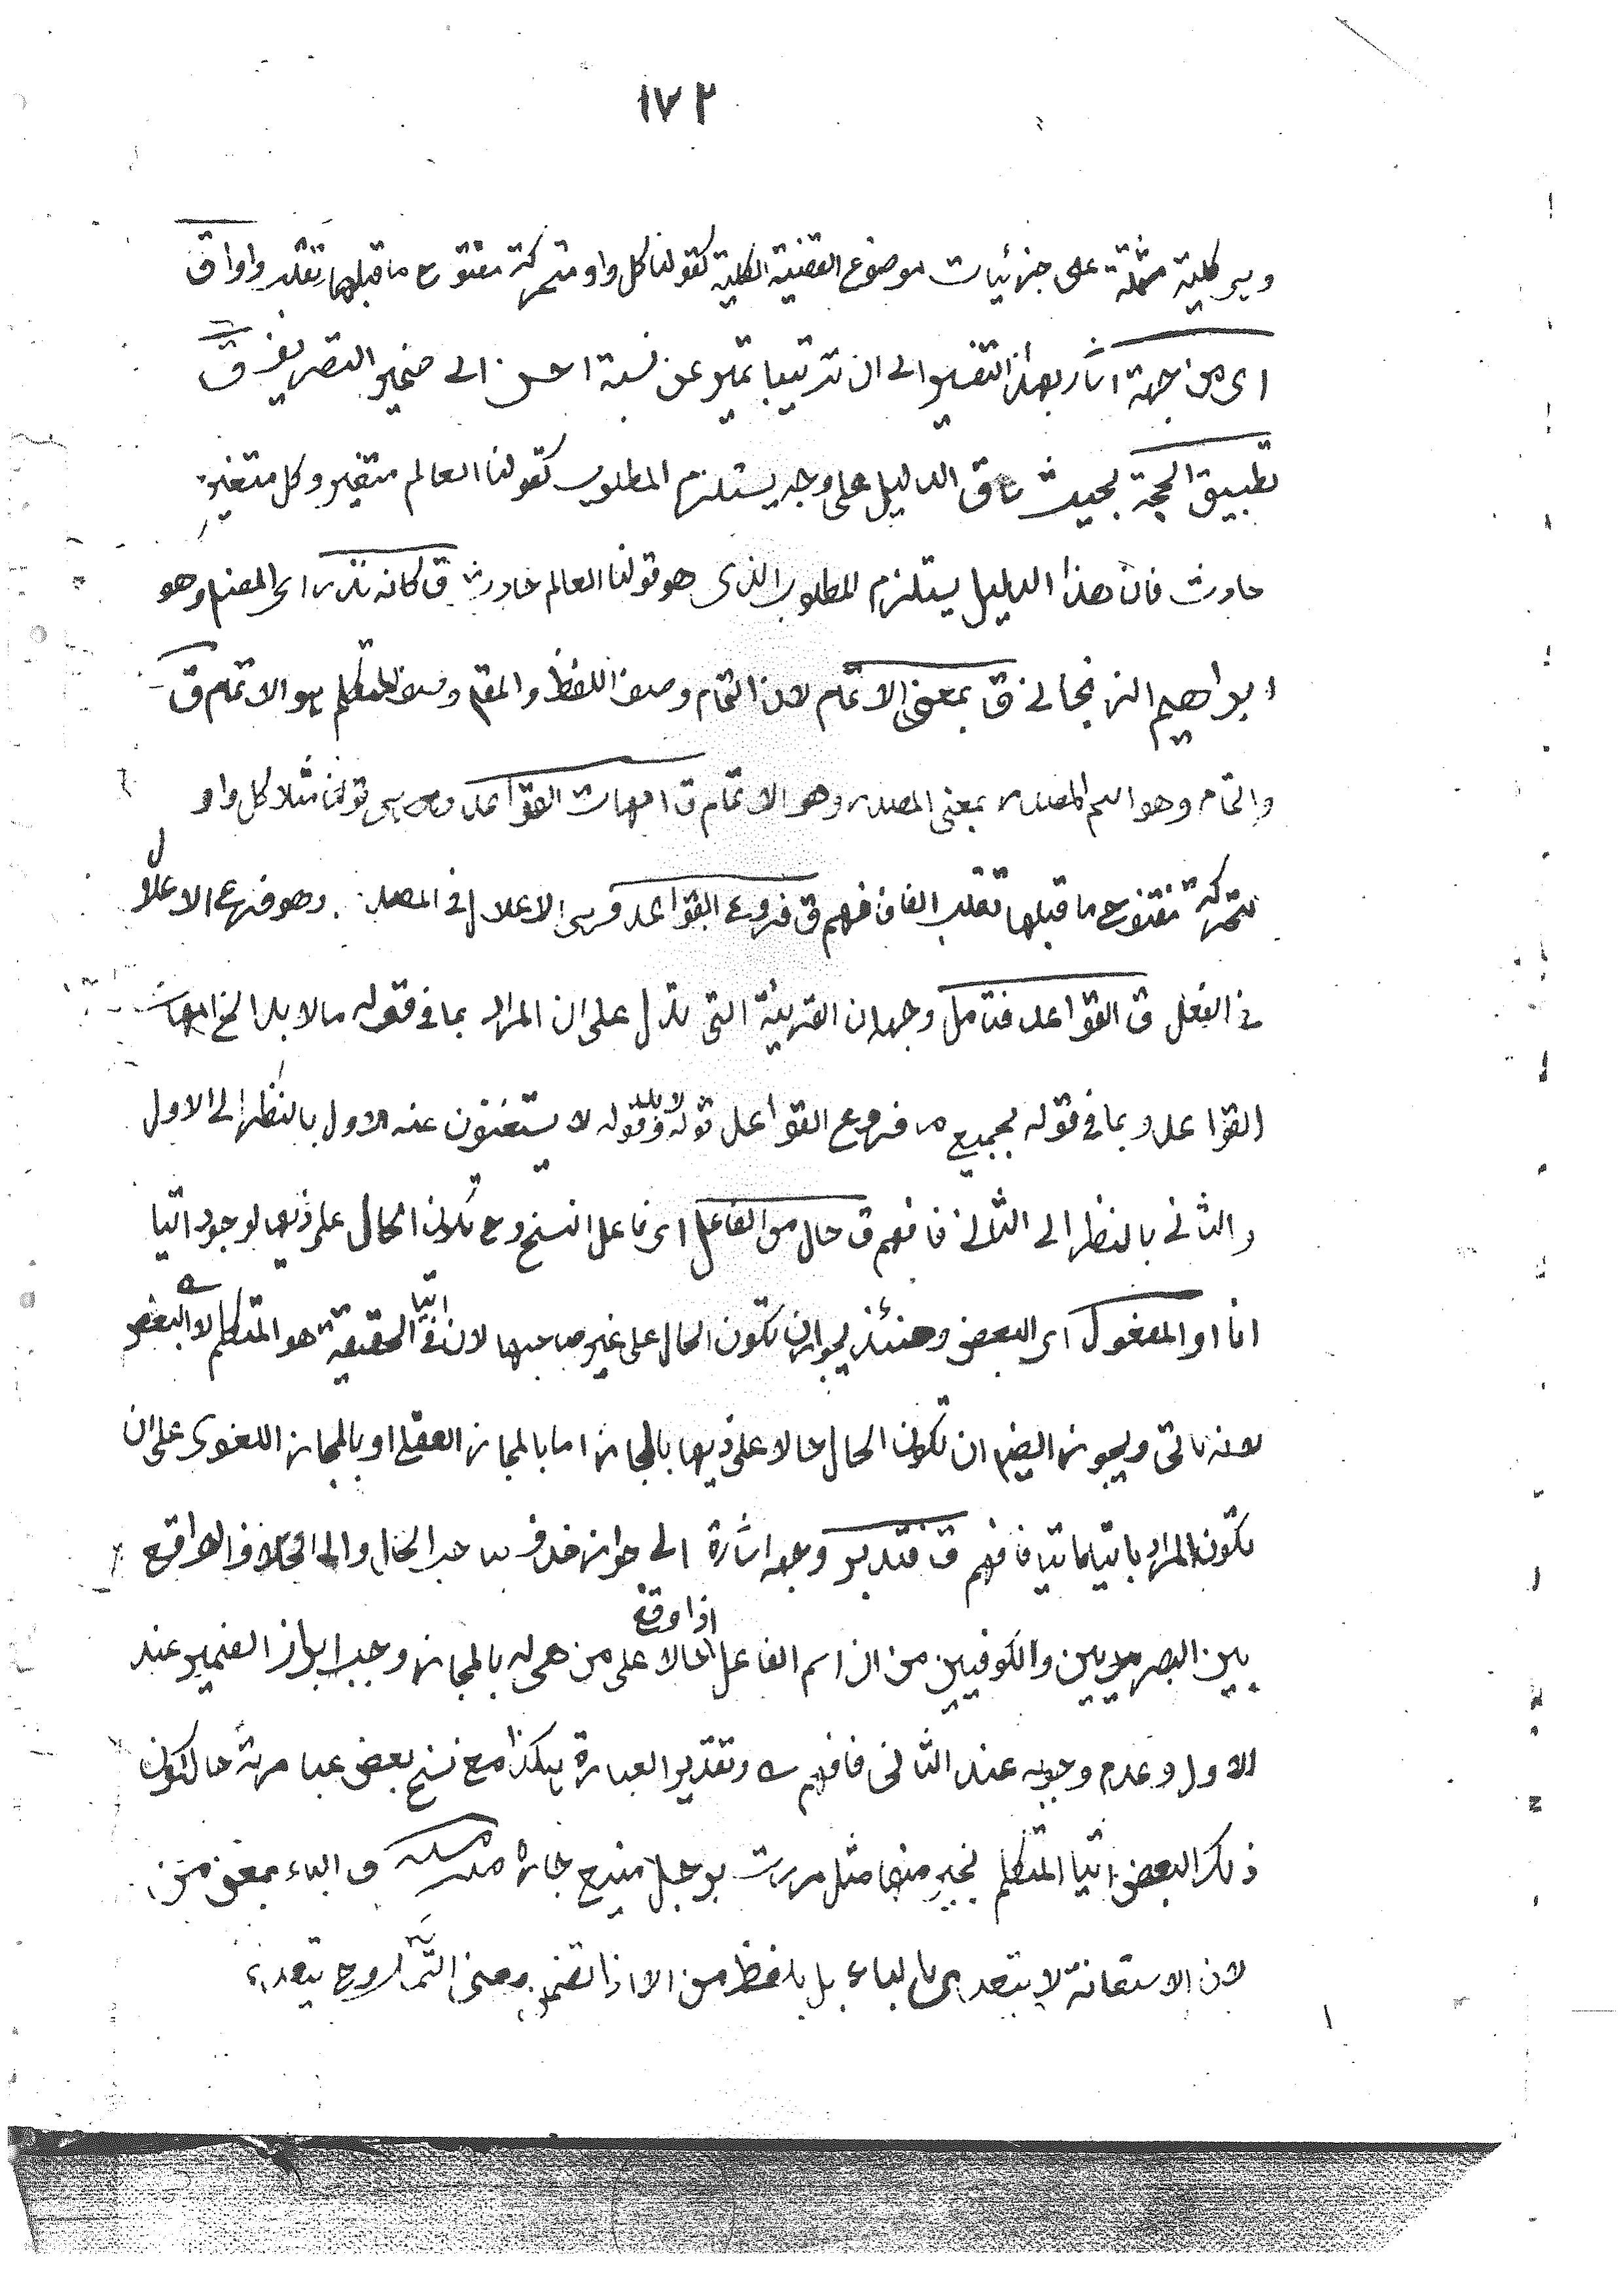 ١٧٢
وهي كلية مشتملة على جزئيات موضوع القضية الكلية كقولنا كل واو متحركة مفتوح ما قبلها تقلب واوا ق
اى من جهة اشار بهذا التفسير الى ان ترتيبا تميز عن نسبة احسن الى ضمير التصريف ق
تطبيق الحجة بحيث ساق الدليل على وجه يستلزم المطلوب كقولنا العالم متغير وكل متغير
حادث فان هذا الدليل يستلزم المطلوب الذى هو قولنا العالم حادث ق كانه نذر اى المصنف وهو
ابراهيم الزنجانى ق بمعنى الاتمام لان التمام وصف اللفظ والمقام وصف المتكلم هو الاتمام ق
والتمام وهو اسم المصدر بمعنى المصدر وهو الاتمام ق امهات القواعد وهى قولنا مثلا كل واو
متحركة مفتوح ما قبلها تقلب الفا فافهم ق فروع القواعد وهى الاعلال فى المصدر وهو فرع الاعلال
فى الفعل ق القواعد فتامل وجهه ان القرينة التى تدل على ان المراد بما فى قوله ما لا بد الخ امهات
القواعد وبما فى قوله بجميع فروع القواعد قوله لا بد وقوله لا يستغنون عنه الاول بالنظر الى الاول
والثانى بالنظر الى الثانى فافهم ق حال من الفاعل اى فاعل انسخ وح تكون الحال على ذيها لوجود اتيا
انا او المفعول اى البعض وحينئذ يجوز ان تكون الحال على غير صاحبها لان اتيا فى الحقيقة هو المتكلم لا البعض
لانه ياتى ويجوز ايضا ان تكون الحال حالا على ذيها بالمجاز اما بالمجاز العقلى او بالمجاز اللغوى على ان
تكون المراد باتيا ماتيا فافهم ق فتدبر وجهه اشارة الى جواز حذف صاحب الحال والى اختلاف الواقع
بين البصريين والكوفيين من ان اسم الفاعل اذا وقع حالا على من هى له بالمجاز وجب ابراز الضمير عند
الاول وعدم وجوبه عند الثانى فافهم وتقدير العبارة هكذا مع نسخ بعض عبارته حالكون
ذلك البعض اتيا المتكلم بخير منها مثل مررت برجل منيع جاره ق الباء بمعنى من
لان الاستعانة لا يتعدى بالباء بل بلفظ من الا اذا تضمن معنى التمسك وح يتعدى